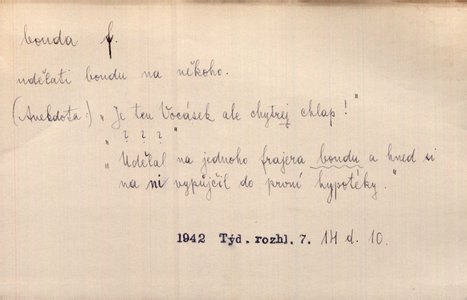 bouda f.
udělati boudu na někoho.
(Anekdota:) „Je ten Vocásek ale chytrej chlap!"
„ ? ? ? "
„Udělal na jednoho frajera boudu a hned si
na ni vypůjčil do první hypotéky."
1942 Týd. rozhl. 7. 14 d. 10.